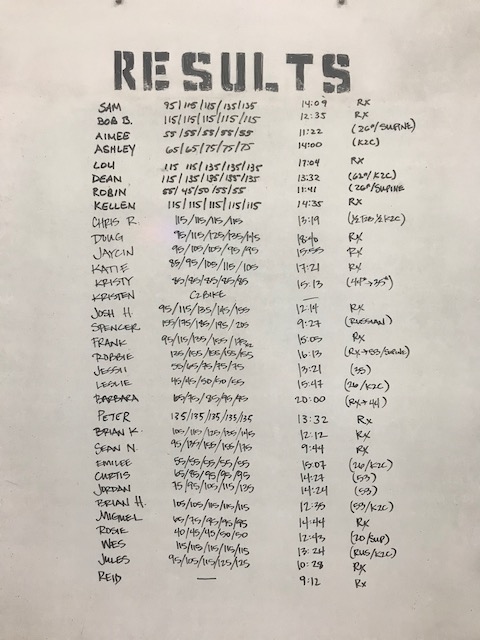 RESULTS
SAM 95/115/115/135/135 14:09 RX
BOB B. 115/115/115/115/115 12:35 RX
AIMEE 55/55/55/55/55 11:22 (26#/SUPINE)
ASHLEY 65/65/75/75/75 14:00 (K2C)
LOU 115 115/135/135/135 17:04 RX
DEAN 115/135/135/135/135 13:32 (62#/K2C)
ROBIN 55/45/50/55/55 11:41 (26#/SUPINE
KELLEN 115/115/115/115/115 14:35 RX
CHRIS R. 115/115/115/115 13:19 (½ T2B/½ K2C)
DOUG 95/115/125/135/145 18:40 RX
JAYCIN 95/105/105/95/95 15:55 RX
KATIE 85/95/105/115/105 17:21 RX
KRISTY 85/85/85/85/85 15:13 (44#→35#)
KRISTEN C2BIKE —
JOSH H 95/115/135/145/155 12:14 RX
SPENCER 155/175/185/195/205 9:27 (RUSSIAN)
FRANK 95/115/135/155 15:05 RX
ROBBIE 135/155/155/155/155 16:13 (RX→53/SUPINE)
JESSII 55/65/75/75/75 13:21 (35)
LESLIE 45/45/50/50/55 15:47 (26/K2C)
BARBARA 65/75/85/95/95 20:00 (RX→44)
PETER 135/135/135/135/135 13:32 RX
BRIAN K. 105/115/125/135/145 12:12 RX
SEAN N. 95/135/155/155/175 9:44 RX
EMILEE 55/55/55/55/55 15:07 (26/K2C)
CURTIS 65/95/95/95/95 14:27 (53)
JORDAN 75/95/105/115/135 14:24 (53)
BRIAN H. 105/105/115/115/115 12:35 (53/K2C)
MIGUEL 65/75/95/95/95 14:44 RX
ROSIE 40/45/45/50/50 12:43 (20/SUP)
WES 115/115/115/115/115 13:24 (RUS/K2C)
JULES 95/105/115/125/125 10:28 RX
REID — 9:12 RX